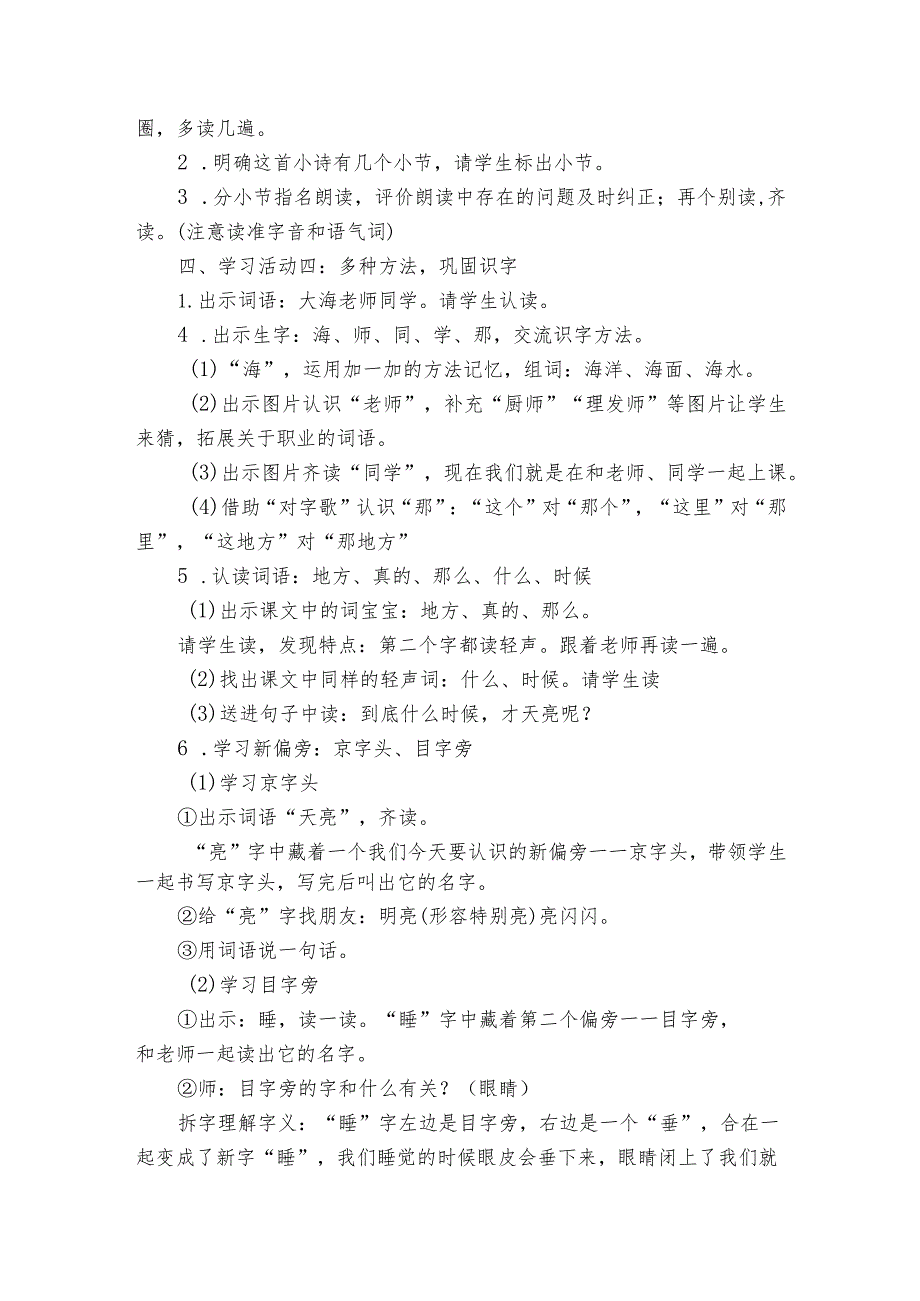 圈，多读几遍。
2 .明确这首小诗有几个小节，请学生标出小节。
3 .分小节指名朗读，评价朗读中存在的问题及时纠正；再个别读,齐
读。(注意读准字音和语气词)
四、学习活动四：多种方法，巩固识字
1.出示词语：大海老师同学。请学生认读。
4 .出示生字：海、师、同、学、那，交流识字方法。
(1)“海”，运用加一加的方法记忆，组词：海洋、海面、海水。
(2)出示图片认识“老师”，补充“厨师”“理发师”等图片让学生
来猜，拓展关于职业的词语。
(3)出示图片齐读“同学”，现在我们就是在和老师、同学一起上课。
(4)借助“对字歌”认识“那”：“这个”对“那个”，“这里”对“那
里”，“这地方”对“那地方”
5 .认读词语：地方、真的、那么、什么、时候
(1)出示课文中的词宝宝：地方、真的、那么。
请学生读，发现特点：第二个字都读轻声。跟着老师再读一遍。
(2)找出课文中同样的轻声词：什么、时候。请学生读
(3)送进句子中读：到底什么时候，才天亮呢？
6 .学习新偏旁：京字头、目字旁
(1)学习京字头
①出示词语“天亮”，齐读。
“亮”字中藏着一个我们今天要认识的新偏旁一一京字头，带领学生
一起书写京字头，写完后叫出它的名字。
②给“亮”字找朋友：明亮(形容特别亮)亮闪闪。
③用词语说一句话。
(2)学习目字旁
①出示：睡，读一读。“睡”字中藏着第二个偏旁一一目字旁，
和老师一起读出它的名字。
②师：目字旁的字和什么有关？（眼睛）
拆字理解字义：“睡”字左边是目字旁，右边是一个“垂”，合在一
起变成了新字“睡”，我们睡觉的时候眼皮会垂下来，眼睛闭上了我们就